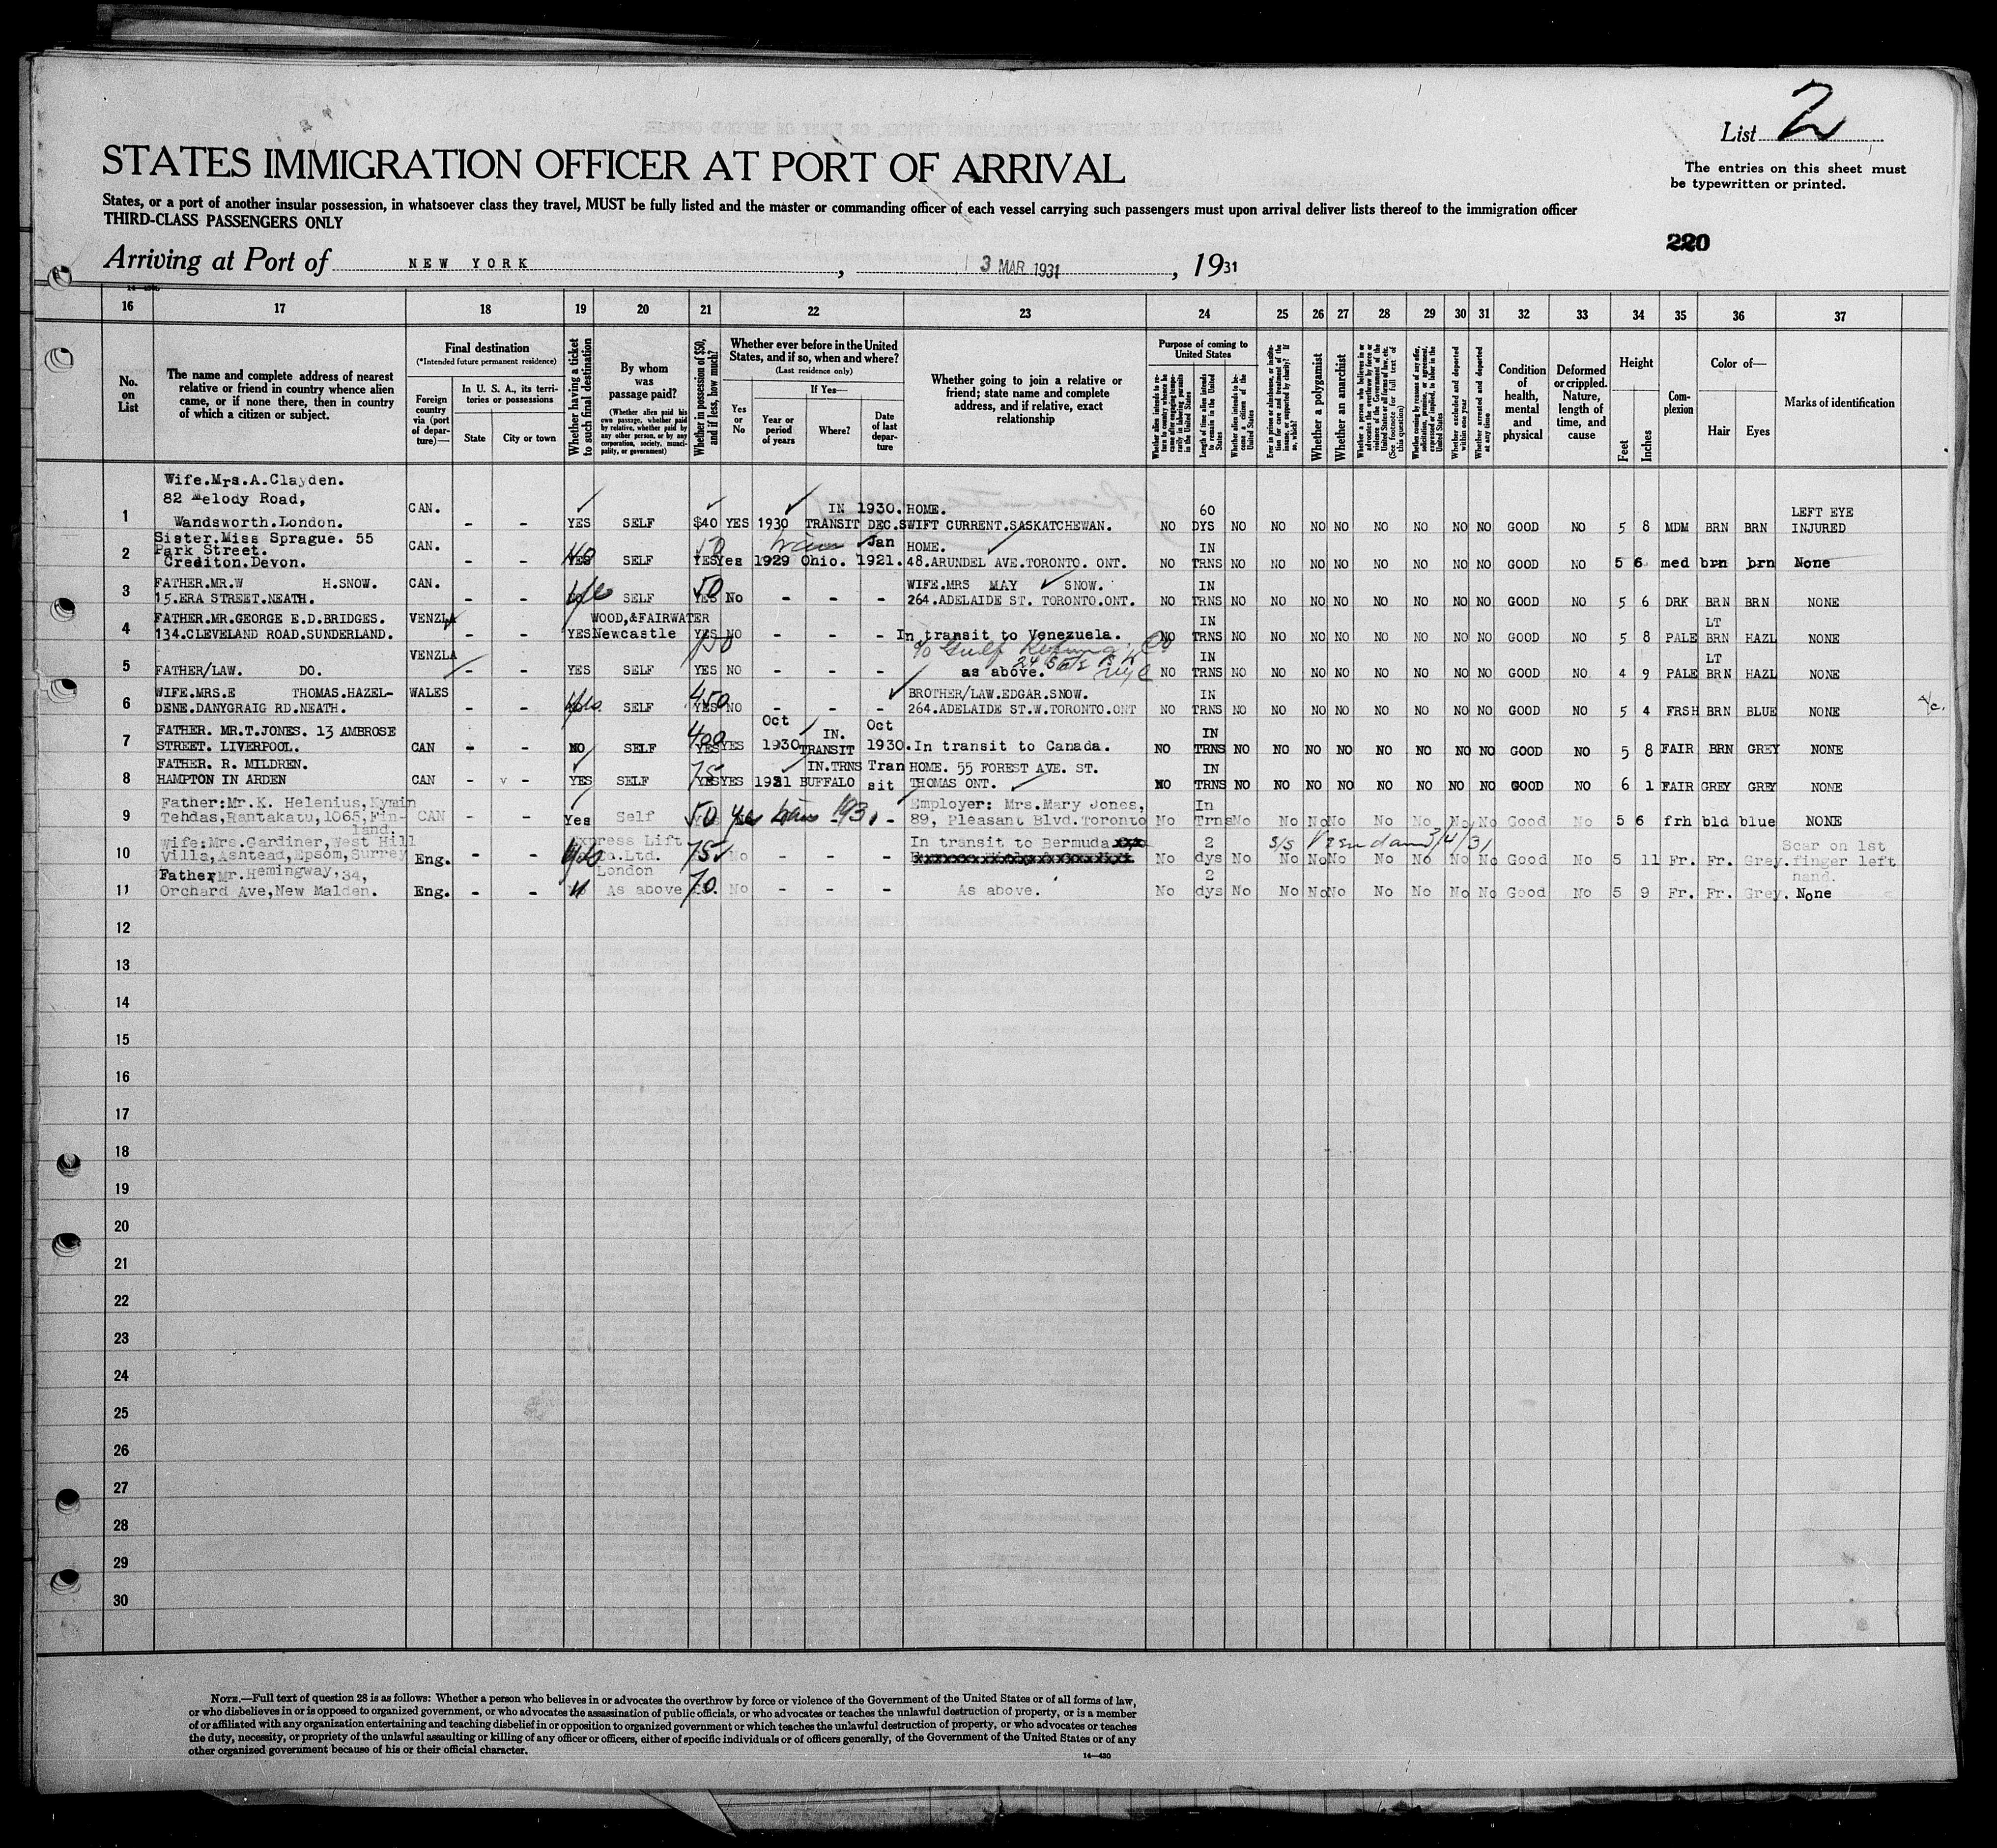 List 2
The entries on this sheet must
be typewritten or printed.
STATES IMMIGRATION OFFICER AT PORT OF ARRIVAL
States, or a port of another insular possession, in whatsoever class they travel, MUST be fully listed and the master or commanding officer of each vessel carrying such passengers must upon arrival deliver lists thereof to the immigration officer
THIRD-CLASS PASSENGERS ONLY
220
Arriving at Port of NEW YORK, 3 MAR 1931, 1931
16 17 18 19 20 21 22 23 24 25 26 27 28 29 30 31 32 33 34 35 36 37
No. on List
The name and complete address of nearest
relative or friend in country whence alien
came, or if none there, then in country
of which a citizen or subject.
Final destination
(*Intended future permanent residence)
Foreign country via (port of departure)—
In U. S. A., its territories or possessions
State
City or town
Whether having a ticket to such final destination
By whom was passage paid?
(Whether alien paid his own passage, whether paid by relative, whether paid by any other person, or by any corporation, society, municipality, or government)
Whether in possession of $50, and if less, how much?
Whether ever before in the United
States, and if so, when and where?
(Last residence only)
Yes or No
If Yes—
Year or period of years
Where?
Date of last departure
Whether going to join a relative or
friend; state name and complete
address, and if relative, exact
relationship
Purpose of coming to United States
Length of time alien intends to remain in the United States
Whether alien intends to become a citizen of the United States
Whether a polygamist
Whether an anarchist
Whether excluded and deported within one year
Whether arrested and deported at any time
Condition of health, mental and physical
Deformed or crippled. Nature, length of time, and cause
Height
Feet
Inches
Complexion
Color of—
Hair
Eyes
Marks of identification
Wife.Mrs.A.Clayden.
82 Melody Road,
1 Wandsworth.London. CAN. - - YES SELF $40 YES 1930 IN TRANSIT 1930. DEC. HOME. SWIFT CURRENT.SASKATCHEWAN. NO 60 DYS NO NO NO NO NO NO NO NO GOOD NO 5 8 MDM BRN BRN LEFT EYE INJURED
Sister.Miss Sprague. 55
Park Street.
2 Crediton.Devon. CAN. - - YES SELF 50 YES Yes 1929 Ohio. Jan 1921. HOME. 48.ARUNDEL AVE.TORONTO. ONT. NO IN TRNS NO NO NO NO NO NO NO NO GOOD NO 5 6 med brn brn None
FATHER.MR.W H.SNOW.
3 15.ERA STREET.NEATH. CAN. - - SELF 50 YES No - - - WIFE.MRS MAY SNOW. 264.ADELAIDE ST. TORONTO.ONT. NO IN TRNS NO NO NO NO NO NO NO NO GOOD NO 5 6 DRK BRN BRN NONE
FATHER.MR.GEORGE E.D.BRIDGES.
4 134.CLEVELAND ROAD.SUNDERLAND. VENZLA - - YES WOOD,&FAIRWATER Newcastle YES NO - - - In transit to Venezuela. NO IN TRNS NO NO NO NO NO NO NO NO GOOD NO 5 8 PALE LT BRN HAZL NONE
150 c/o Gulf Co
24 State St
NYC
5 FATHER/LAW. DO. VENZLA - - YES SELF YES NO - - - as above. NO IN TRNS NO NO NO NO NO NO NO NO GOOD NO 4 9 PALE LT BRN HAZL NONE
WIFE.MRS.E THOMAS.HAZEL-
6 DENE.DANYGRAIG RD.NEATH. WALES - - SELF 450 YES NO - - - BROTHER/LAW.EDGAR.SNOW. 264.ADELAIDE ST.W.TORONTO.ONT NO IN TRNS NO NO NO NO NO NO NO NO GOOD NO 5 4 FRSH BRN BLUE NONE
FATHER. MR.T.JONES. 13 AMBROSE
7 STREET. LIVERPOOL. CAN - - NO SELF 400 YES YES Oct 1930 IN. TRANSIT Oct 1930. In transit to Canada. NO IN TRNS NO NO NO NO NO NO NO NO GOOD NO 5 8 FAIR BRN GREY NONE
FATHER. R. MILDREN.
8 HAMPTON IN ARDEN CAN - - YES SELF 75 YES YES 1921 IN.TRNS BUFFALO Transit HOME. 55 FOREST AVE. ST. THOMAS ONT. NO IN TRNS NO NO NO NO NO NO NO NO GOOD NO 6 1 FAIR GREY GREY NONE
Father:Mr.K. Helenius,Kymin
9 Tehdas,Rantakatu,1065,Fin-
land. CAN - - Yes Self 50 yes - Employer: Mrs.Mary Jones, 89, Pleasant Blvd.Toronto No In Trns No No No No No No No No Good No 5 6 frh bld blue NONE
Wife:Mrs.Gardiner,West Hill
10 Villa,Ashtead,Epsom,Surrey Eng. - - Express Lift Co.Ltd. London 75 No - - - In transit to Bermuda No 2 dys No No No No No No No No Good No 5 11 Fr. Fr. Grey. Scar on 1st finger left hand.
S/S Veendam 3/4/31
Father,Mr.Hemingway,34,
11 Orchard Ave,New Malden. Eng. - - As above 70. No - - - As above. No 2 dys No No No No No No No No Good No 5 9 Fr. Fr. Grey. None
12
13
14
15
16
17
18
19
20
21
22
23
24
25
26
27
28
29
30
NOTE.—Full text of question 28 is as follows: Whether a person who believes in or advocates the overthrow by force or violence of the Government of the United States or of all forms of law,
or who disbelieves in or is opposed to organized government, or who advocates the assassination of public officials, or who advocates or teaches the unlawful destruction of property, or is a member
of or affiliated with any organization entertaining and teaching disbelief in or opposition to organized government or which teaches the unlawful destruction of property, or who advocates or teaches
the duty, necessity, or propriety of the unlawful assaulting or killing of any officer or officers, either of specific individuals or of officers generally, of the Government of the United States or of any
other organized government because of his or their official character.
14—430